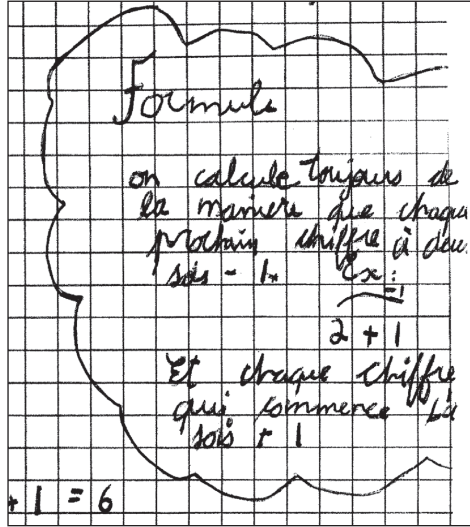 Formule
on calcule toujours de
la maniere que chaque
prochain chiffre à deux
sois - 1. Ex:
-1
2 + 1
Et chaque chiffre
qui commence la
sois + 1
+ 1 = 6